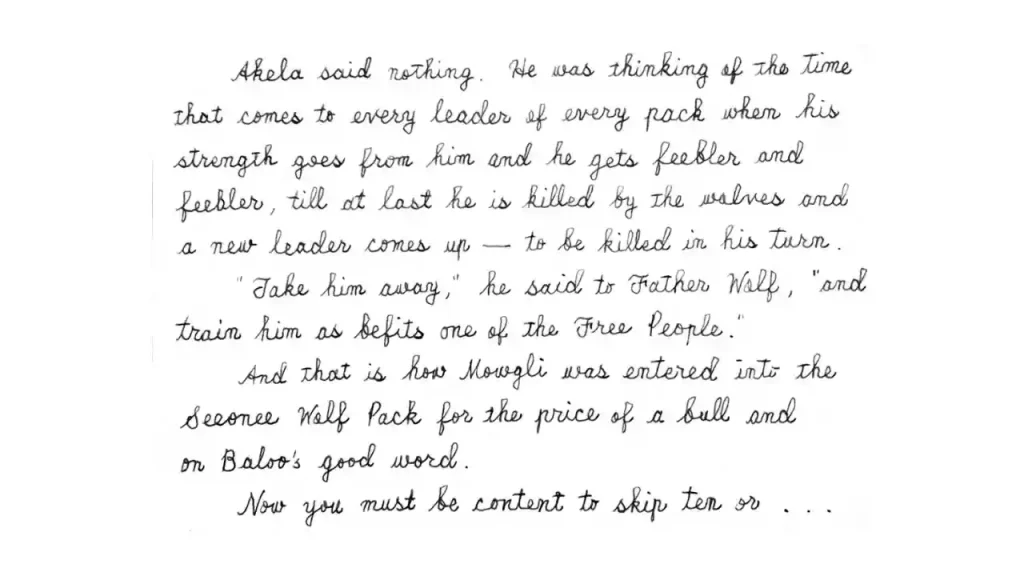 Akela said nothing. He was thinking of the time
that comes to every leader of every pack when his
strength goes from him and he gets feebler and
feebler, till at last he is killed by the wolves and
a new leader comes up — to be killed in his turn.
"Take him away," he said to Father Wolf, "and
train him as befits one of the Free People."
And that is how Mowgli was entered into the
Seeonee Wolf Pack for the price of a bull and
on Baloo's good word.
Now you must be content to skip ten or . . .